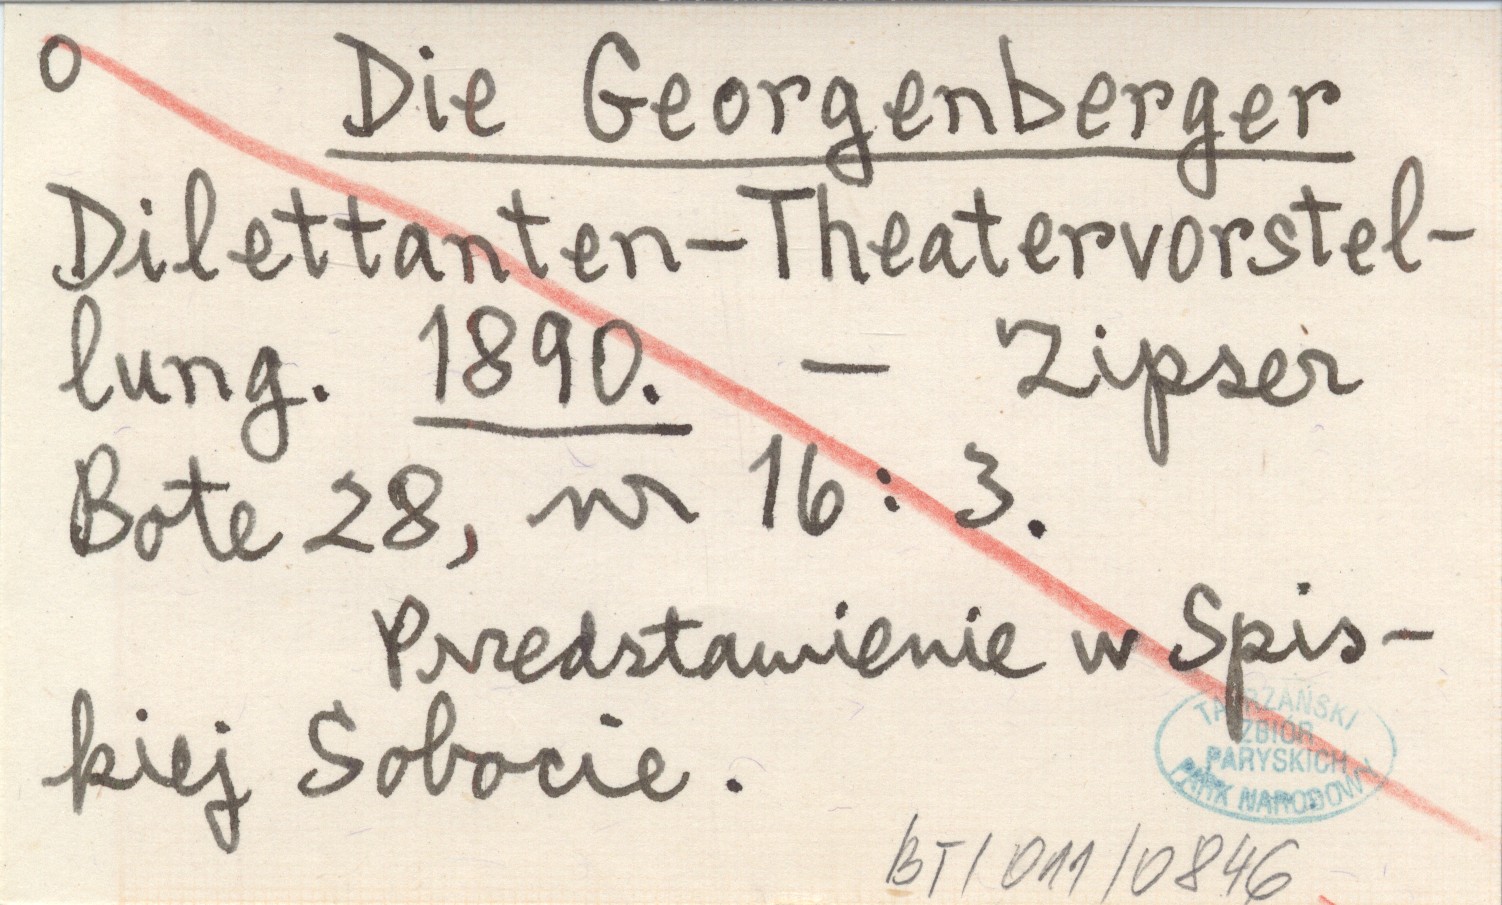 o Die Georgenberger
Dilettanten-Theatervorstel-
lung. 1890. – Zipser
Bote 28, nr 16 : 3.
Przedstawienie w Spis-
kiej Sobocie.
TATRZAŃSKI
ZBIÓR
PARYSKICH
PARK NARODOWY
BT/011/0846